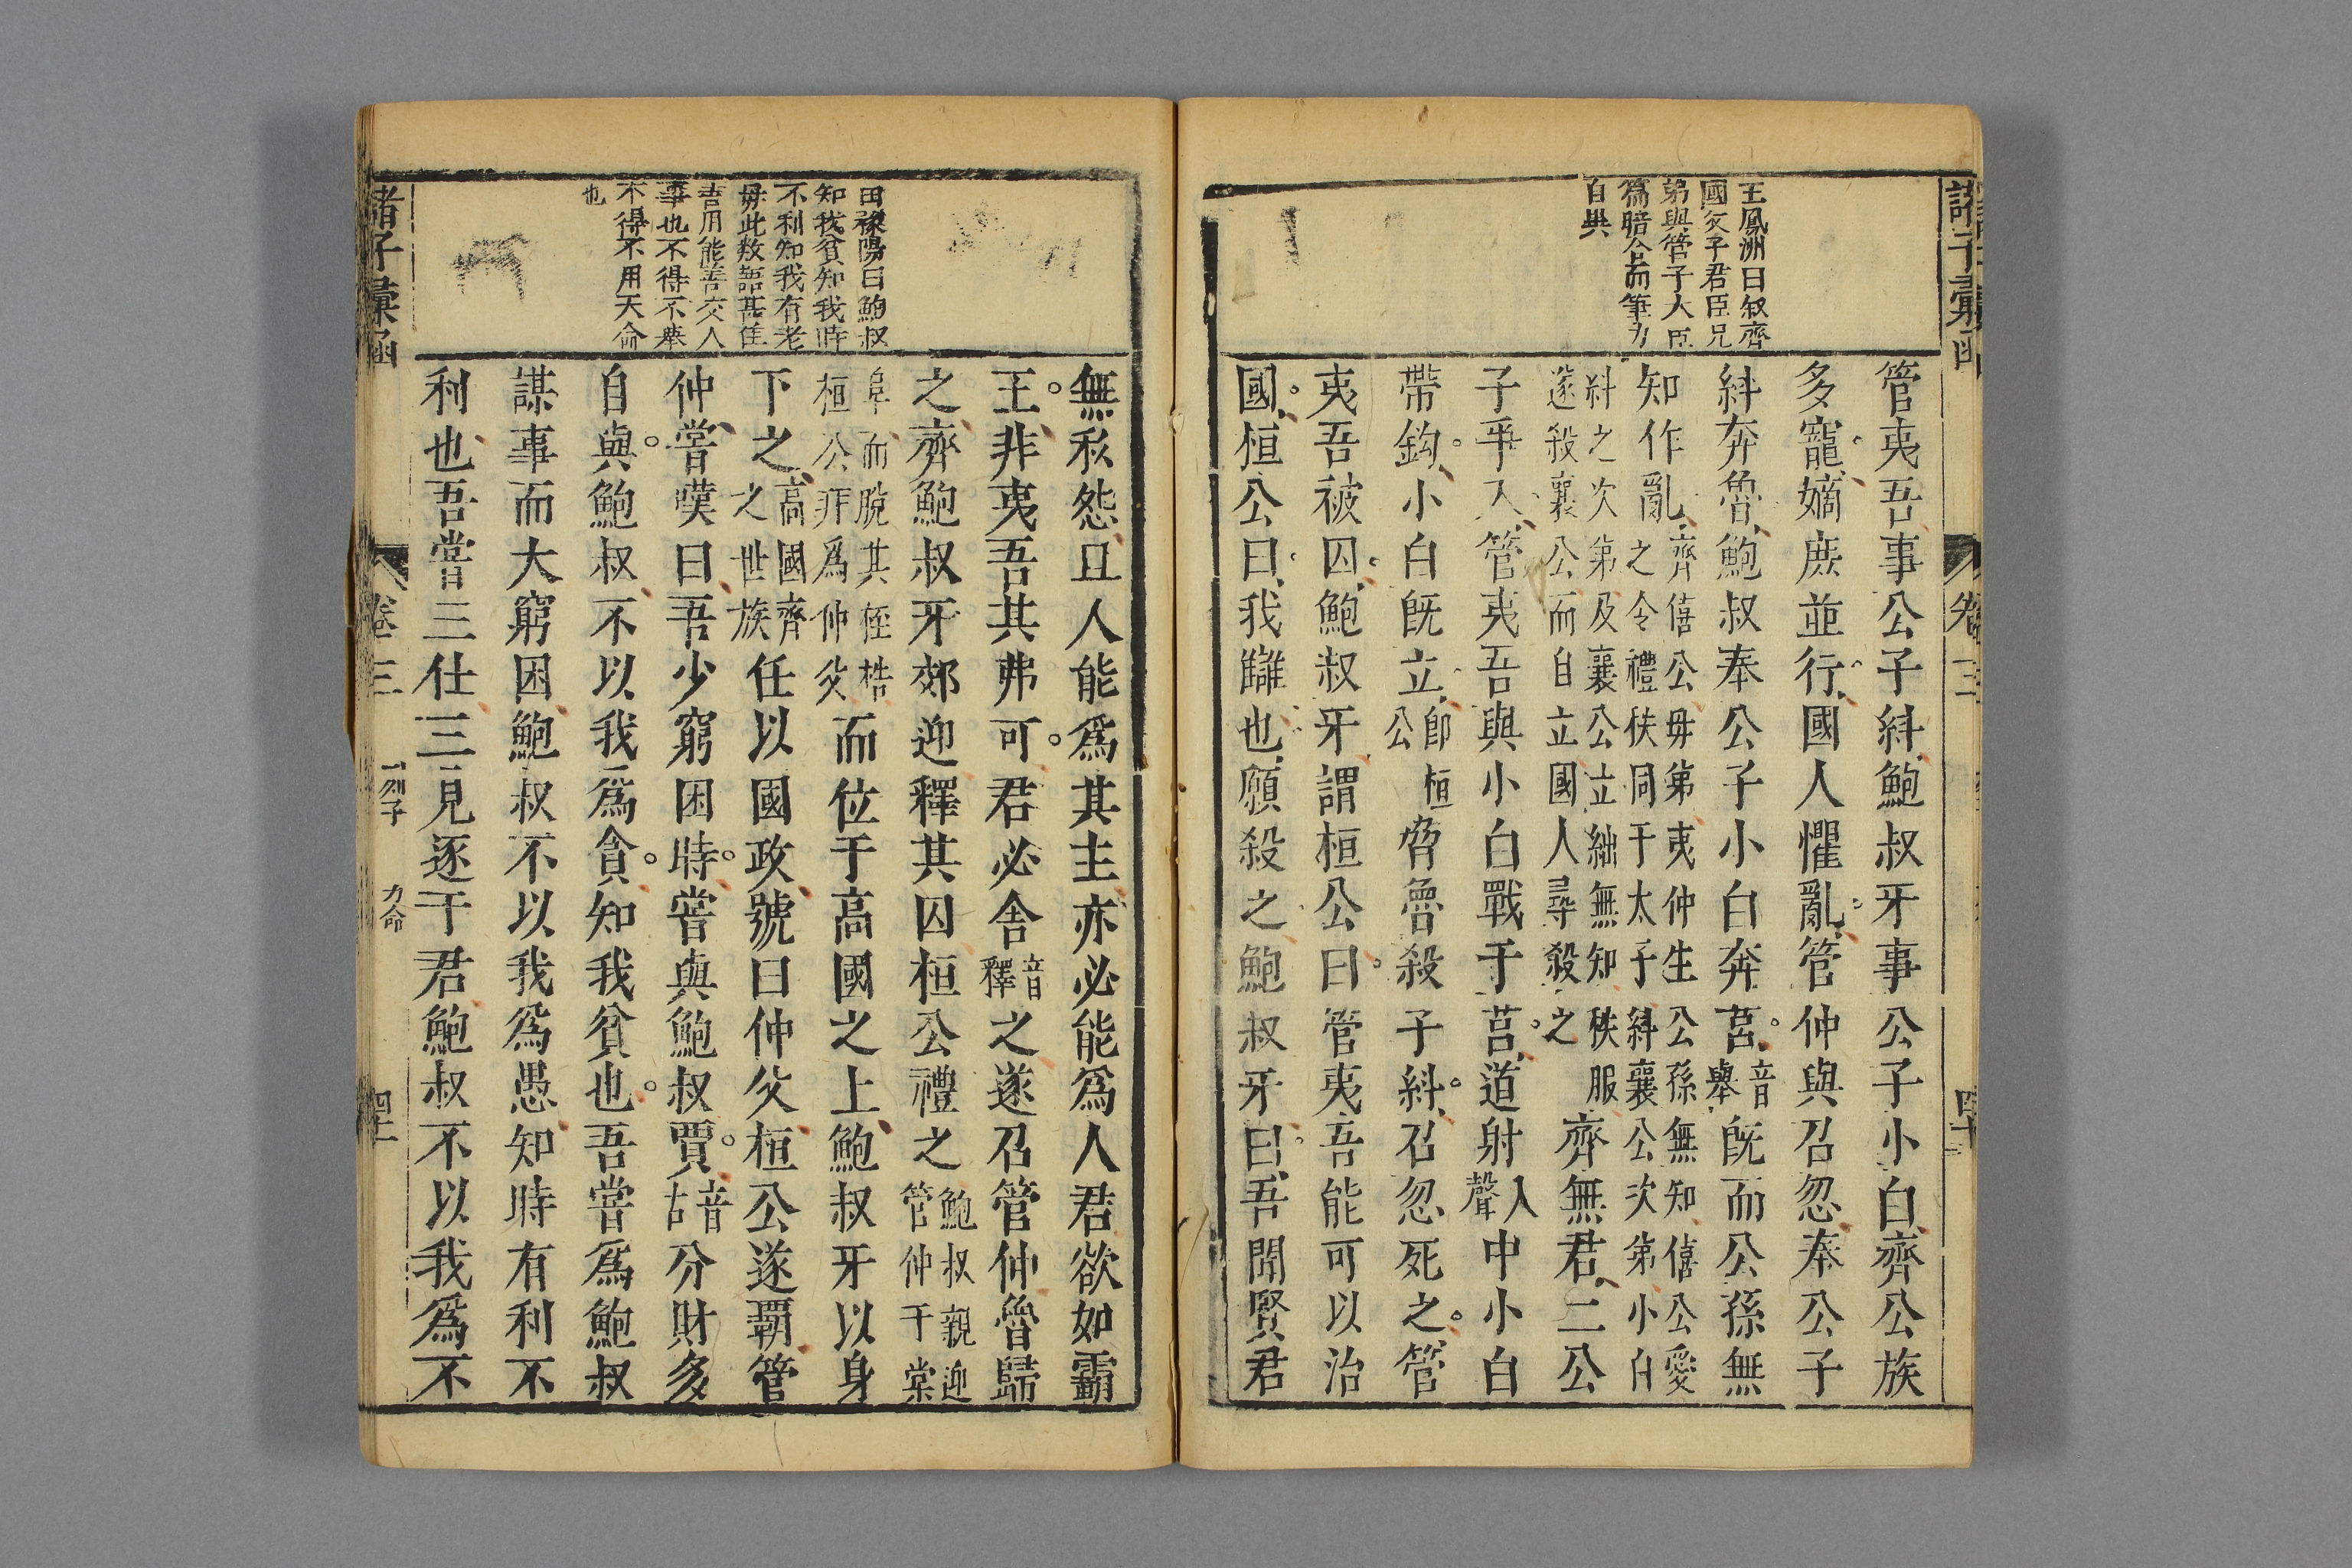 諸子彙函
卷三
王鳳洲曰叙齊
國父子君臣兄
弟與管子大臣
篇暗合而筆力
自與
管夷吾事公子糾鮑叔牙事公子小白齊公族
多寵嫡庶並行國人懼亂管仲與召忽奉公子
糾奔魯鮑叔奉公子小白奔莒音舉既而公孫無
知作亂齊僖公毋弟夷仲生公孫無知僖公愛之令禮秩同于太子糾襄公次弟小白
糾之次弟及襄公立絀無知秩服遂殺襄公而自立國人尋殺之齊無君二公
子爭入管夷吾與小白戰于莒道射入聲中小白
帶鈎小白既立卽桓公脅魯殺子糾召忽死之管
夷吾被囚鮑叔牙謂桓公曰管夷吾能可以治
國桓公曰我讎也願殺之鮑叔牙曰吾聞賢君
田豫陽曰鮑叔
知我貧知我時
不利知我有老
毋此数語甚佳
吉用能善交人
事也不得不舉
不得不用天命
也
無私怨且人能爲其主亦必能爲人君欲如霸
王非夷吾其弗可君必舍音釋之遂召管仲魯歸
之齊鮑叔牙郊迎釋其囚桓公禮之鮑叔親迎管仲于棠
阜而脫其桎梏桓公拜爲仲父而位于高國之上鮑叔牙以身
下之高國齊之世族任以國政號曰仲父桓公遂霸管
仲嘗嘆曰吾少窮困時嘗與鮑叔賈音古分財多
自與鮑叔不以我爲貪知我貧也吾嘗爲鮑叔
謀事而大窮困鮑叔不以我爲愚知時有利不
利也吾嘗三仕三見逐于君鮑叔不以我爲不
諸子彙函
卷三
列子
力命